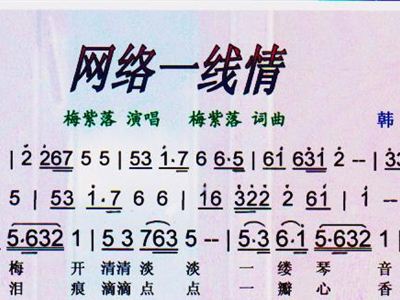 网络一线情
梅紫落 演唱 梅紫落 词曲 韩
| 2 267 5 5 | 53 1·7 6 6·5 | 61 631 2 -- | 33
5 | 53 1·7 6 6 -- | 16 322 2 61 | 5 --
5·632 1 | 5 3 763 5 -- | 5·3 6·1 5·632
梅 开 清清 淡 淡 一 缕 琴 音
泪 痕 滴滴 点 点 一 瓣 心 香